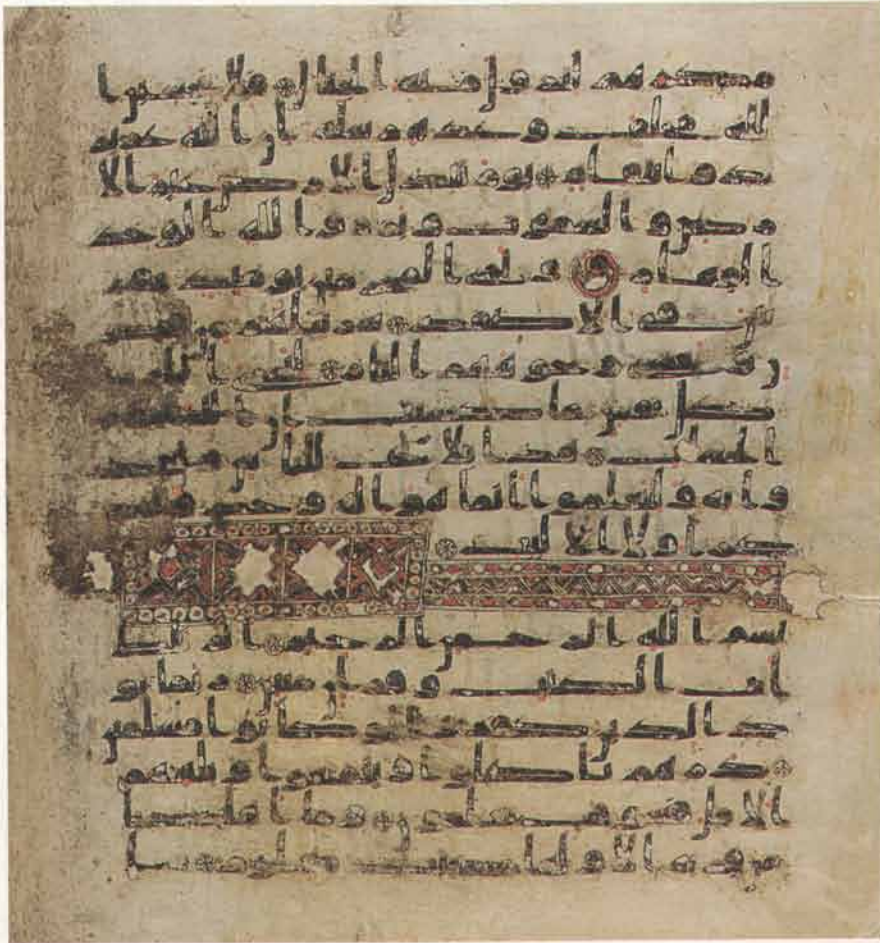 مكرهم لتزول منه الجبال فلا تحسبن ا
لله مخلف وعده رسله ان الله عزيز
ذو انتقام يوم تبدل الارض غير الا
رض والسموت وبرزوا لله الوحد
القهار وترى المجرمين يومئذ مقر
نين في الاصفاد سرابيلهم من قط
ران وتغشى وجوههم النار ليجزي الله
كل نفس ما كسبت ان الله سريع
الحساب هذا بلغ للناس ولينذر
وا به وليعلموا انما هو اله وحد وليذ
كر اولوا الالبب
بسم الله الرحمن الرحيم الر تلك
ايت الكتب وقران مبين ربما يو
د الذين كفروا لو كانوا مسلمين
ذرهم ياكلوا ويتمتعوا ويلههم
الامل فسوف يعلمون وما اهلكنا
من قرية الا ولها كتاب معلوم ما